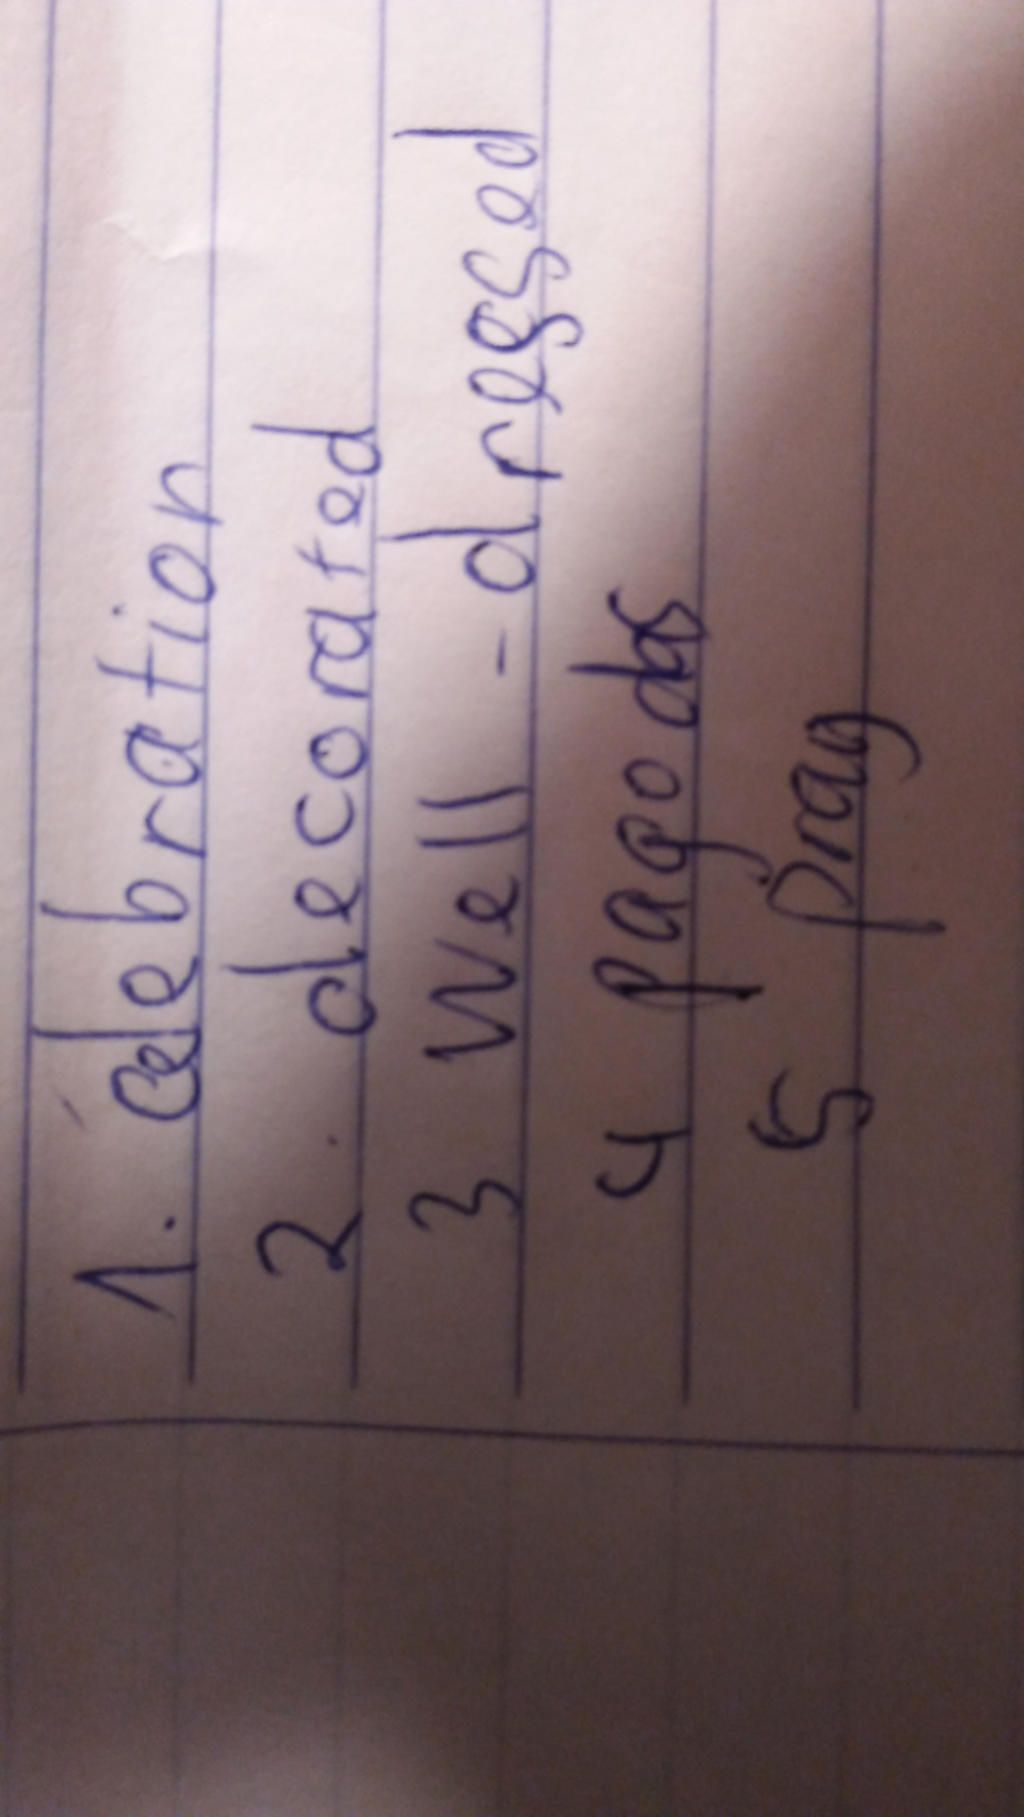 1. celebration
2. decorated
3 well - dressed
4 pagodas
5 pray